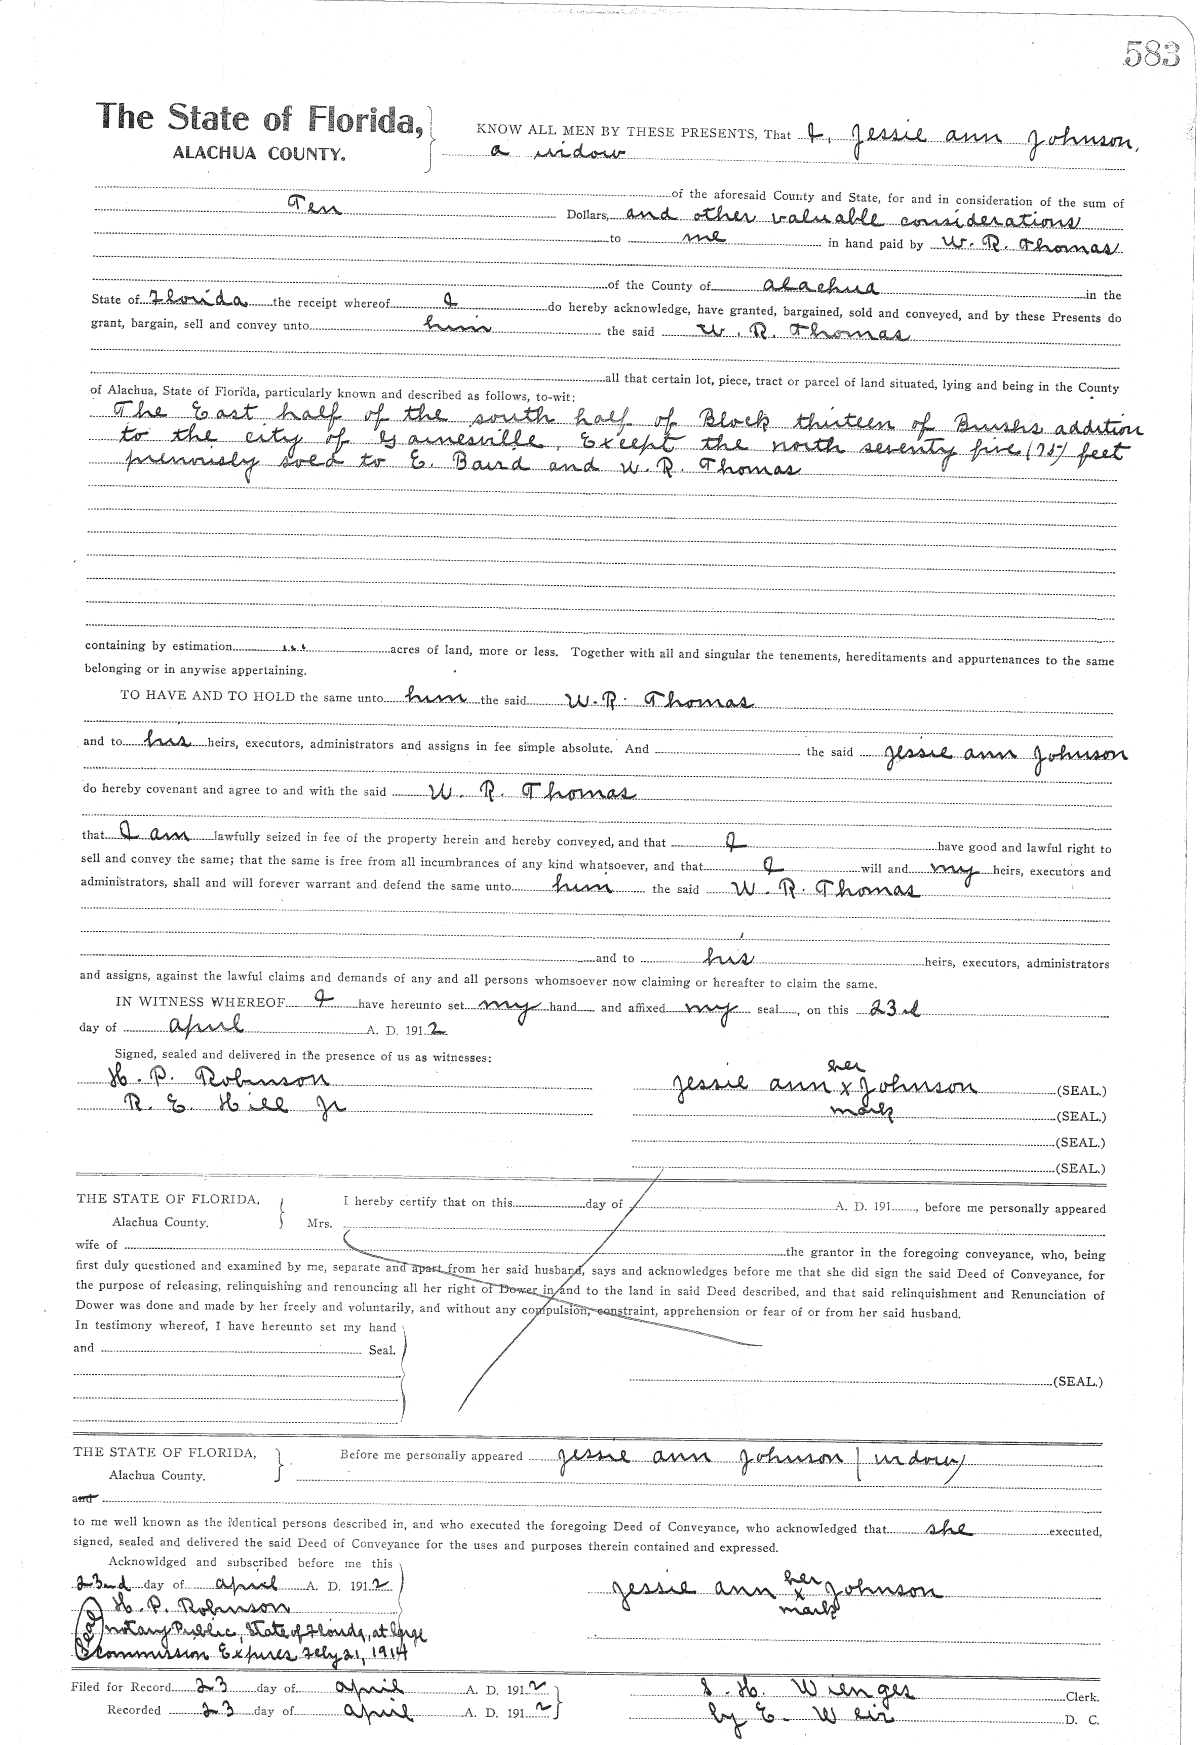 583
The State of Florida,
ALACHUA COUNTY.
KNOW ALL MEN BY THESE PRESENTS, That I, Jessie ann Johnson,
a widow
of the aforesaid County and State, for and in consideration of the sum of
Ten Dollars, and other valuable considerations
to me in hand paid by W. R. Thomas
of the County of Alachua in the
State of Florida the receipt whereof I do hereby acknowledge, have granted, bargained, sold and conveyed, and by these Presents do
grant, bargain, sell and convey unto him the said W. R. Thomas
all that certain lot, piece, tract or parcel of land situated, lying and being in the County
of Alachua, State of Florida, particularly known and described as follows, to-wit:
The East half of the south half of Block thirteen of Brushs addition
to the city of Gainesville, Except the north seventy five (75) feet
previously sold to E. Baird and W. R. Thomas
containing by estimation ... acres of land, more or less. Together with all and singular the tenements, hereditaments and appurtenances to the same
belonging or in anywise appertaining.
TO HAVE AND TO HOLD the same unto him the said W. R. Thomas
and to his heirs, executors, administrators and assigns in fee simple absolute. And the said Jessie ann Johnson
do hereby covenant and agree to and with the said W. R. Thomas
that I am lawfully seized in fee of the property herein and hereby conveyed, and that I have good and lawful right to
sell and convey the same; that the same is free from all incumbrances of any kind whatsoever, and that I will and my heirs, executors and
administrators, shall and will forever warrant and defend the same unto him the said W. R. Thomas
and to his heirs, executors, administrators
and assigns, against the lawful claims and demands of any and all persons whomsoever now claiming or hereafter to claim the same.
IN WITNESS WHEREOF I have hereunto set my hand and affixed my seal, on this 23d
day of april A. D. 1912
Signed, sealed and delivered in the presence of us as witnesses:
H. P. Robinson
R. E. Hill Jr
her
Jessie ann x Johnson (SEAL.)
mark (SEAL.)
(SEAL.)
(SEAL.)
THE STATE OF FLORIDA,
Alachua County.
I hereby certify that on this day of A. D. 191 , before me personally appeared
Mrs.
wife of the grantor in the foregoing conveyance, who, being
first duly questioned and examined by me, separate and apart from her said husband, says and acknowledges before me that she did sign the said Deed of Conveyance, for
the purpose of releasing, relinquishing and renouncing all her right of Dower in and to the land in said Deed described, and that said relinquishment and Renunciation of
Dower was done and made by her freely and voluntarily, and without any compulsion, constraint, apprehension or fear of or from her said husband.
In testimony whereof, I have hereunto set my hand
and Seal.
(SEAL.)
THE STATE OF FLORIDA,
Alachua County.
Before me personally appeared Jessie ann Johnson (widow)
and
to me well known as the identical persons described in, and who executed the foregoing Deed of Conveyance, who acknowledged that she executed,
signed, sealed and delivered the said Deed of Conveyance for the uses and purposes therein contained and expressed.
Acknowldged and subscribed before me this
23nd day of april A. D. 1912
H. P. Robinson
notary Public, State of Florida, at large
Commission Expires Feby 21, 1914
her
Jessie ann x Johnson
mark
Filed for Record 23 day of april A. D. 1912
Recorded 23 day of april A. D. 1912
S. H. Wienges Clerk.
by E. Weir D. C.